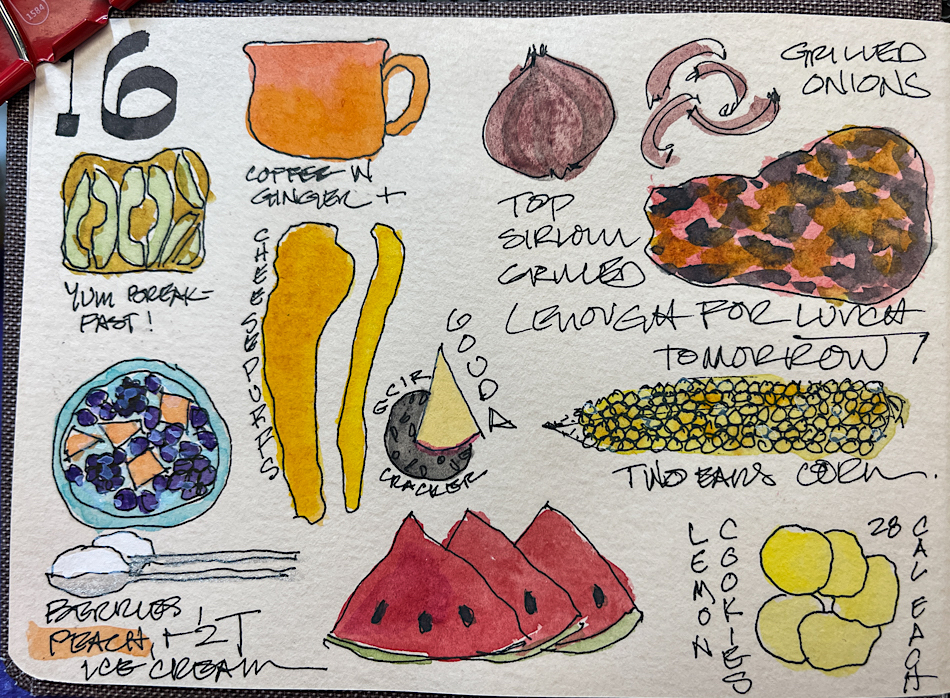 1584
16
COFFEE W
GINGER +
YUM BREAK-
FAST!
CHEESE PUFFS
GOUDA
CRACKER
GRILLED
ONIONS
TOP
SIRLOIN
GRILLED
ENOUGH FOR LUNCH
TOMORROW
TWO EARS CORN.
BERRIES
PEACH, + 2T
ICE CREAM
LEMON
COOKIES
28
CAL EACH